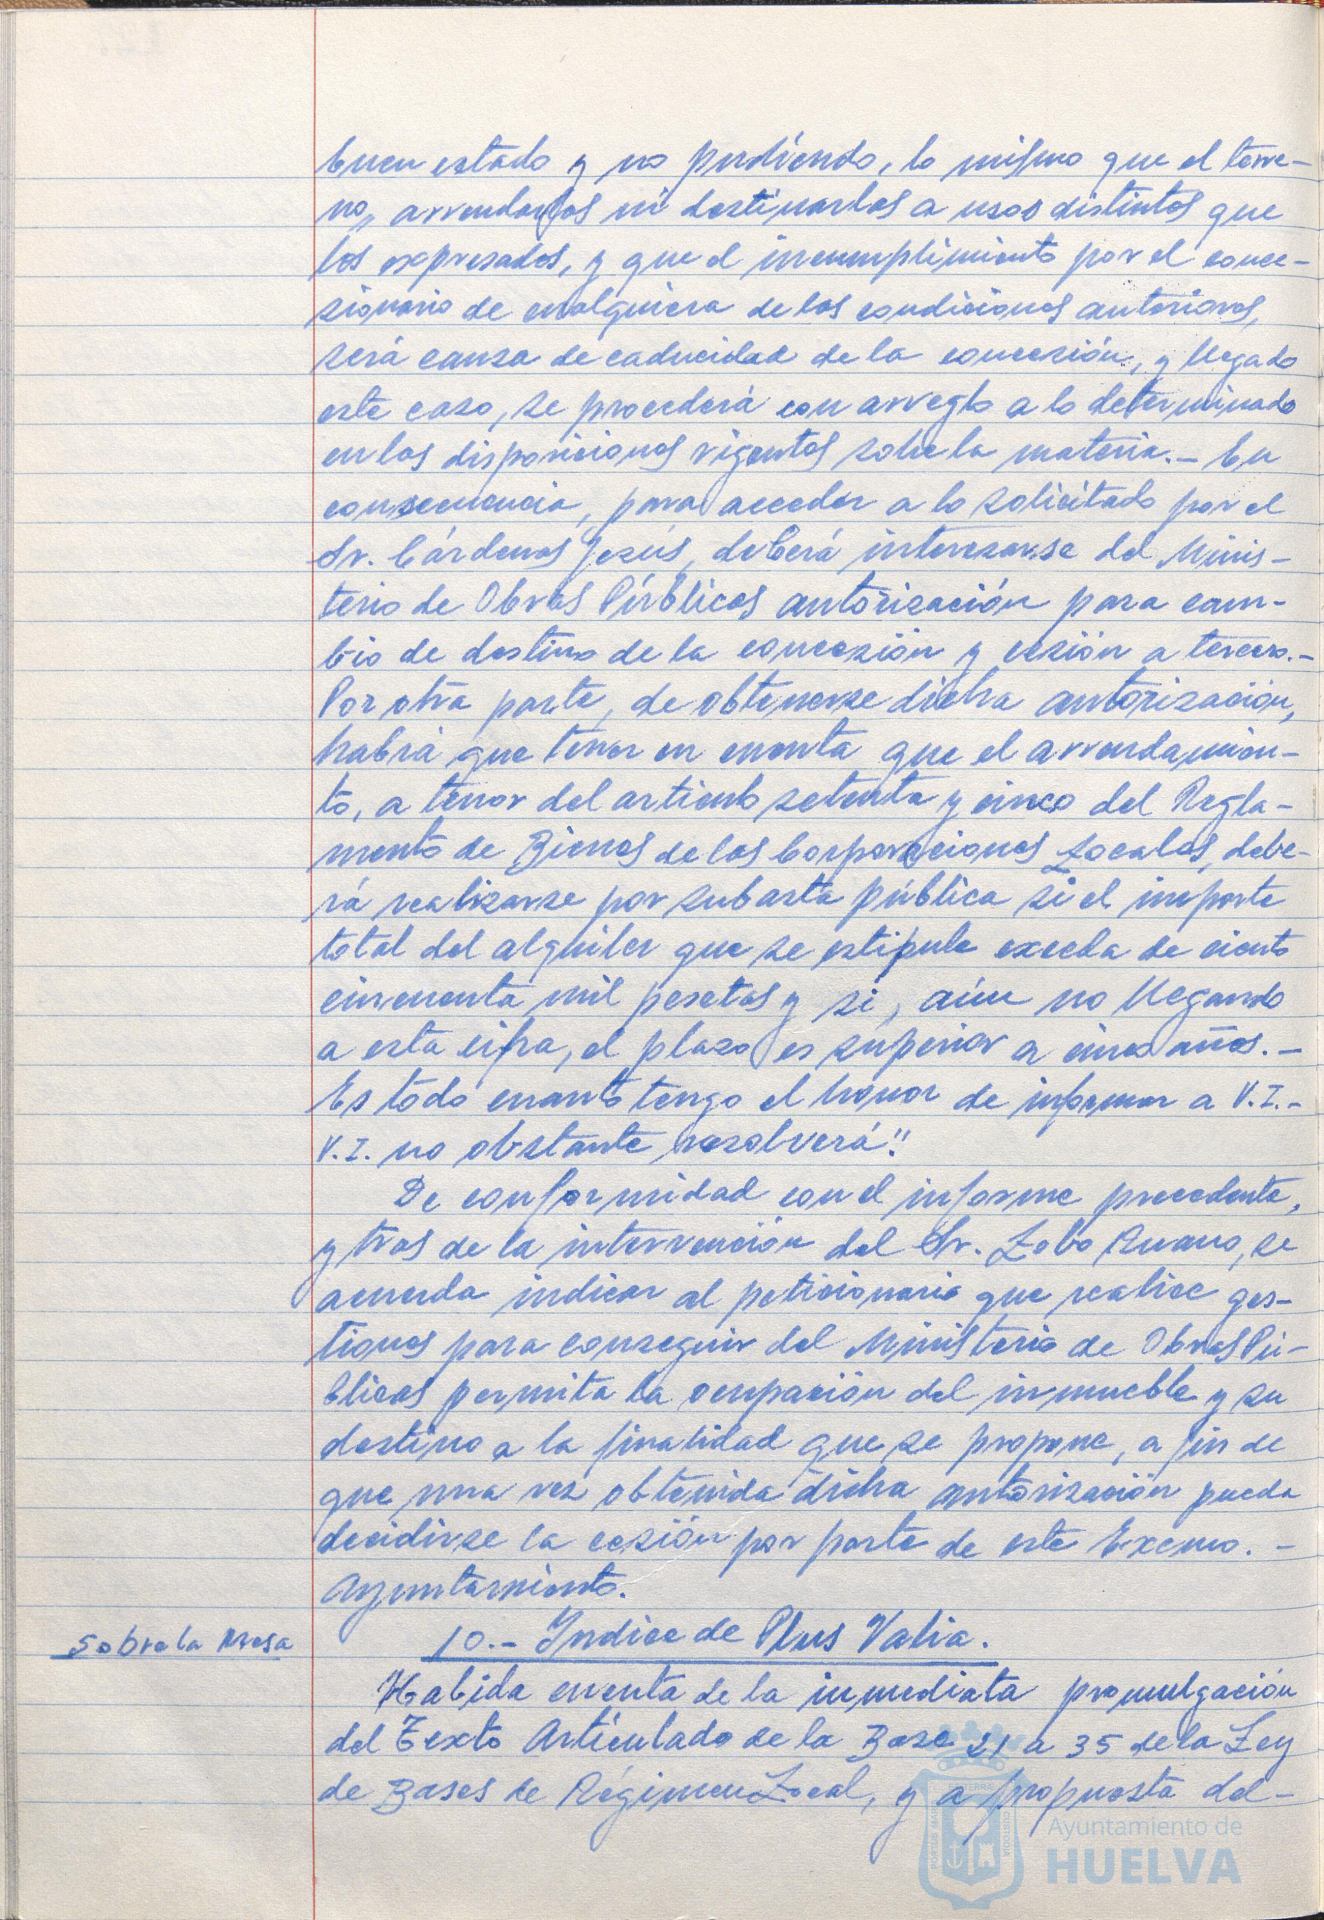 buen estado y no pudiendo, lo mismo que el terre-
no, arrendarlos ni destinarlos a usos distintos que
los expresados, y que el incumplimiento por el conce-
sionario de cualquiera de las condiciones anteriores,
será causa de caducidad de la concesión, y llegado
este caso, se procederá con arreglo a lo determinado
en las disposiciones vigentes sobre la materia.- En
consecuencia, para acceder a lo solicitado por el
Sr. Cárdenas Jesús, deberá interesarse del Minis-
terio de Obras Públicas autorización para cam-
bio de destino de la concesión y cesión a tercero.-
Por otra parte, de obtenerse dicha autorización,
habrá que tener en cuenta que el arrendamien-
to, a tenor del artículo setenta y cinco del Regla-
mento de Bienes de las Corporaciones Locales, debe-
rá realizarse por subasta pública si el importe
total del alquiler que se estipule exceda de ciento
cincuenta mil pesetas y si, aún no llegando
a esta cifra, el plazo es superior a cinco años.-
Es todo cuanto tengo el honor de informar a V.I.-
V.I. no obstante resolverá".
De conformidad con el informe precedente,
y tras de la intervención del Sr. Lobo Ruano, se
acuerda indicar al peticionario que realice ges-
tiones para conseguir del Ministerio de Obras Pú-
blicas permita la ocupación del inmueble y su
destino a la finalidad que se propone, a fin de
que una vez obtenida dicha autorización pueda
decidirse la cesión por parte de este Excmo. -
Ayuntamiento.
Sobre la Mesa
10.- Indice de Plus Valia.
Habida cuenta de la inmediata promulgación
del Texto Artículado de la Base 21 a 35 de la Ley
de Bases de Régimen Local, y a propuesta del-
Ayuntamiento de
HUELVA